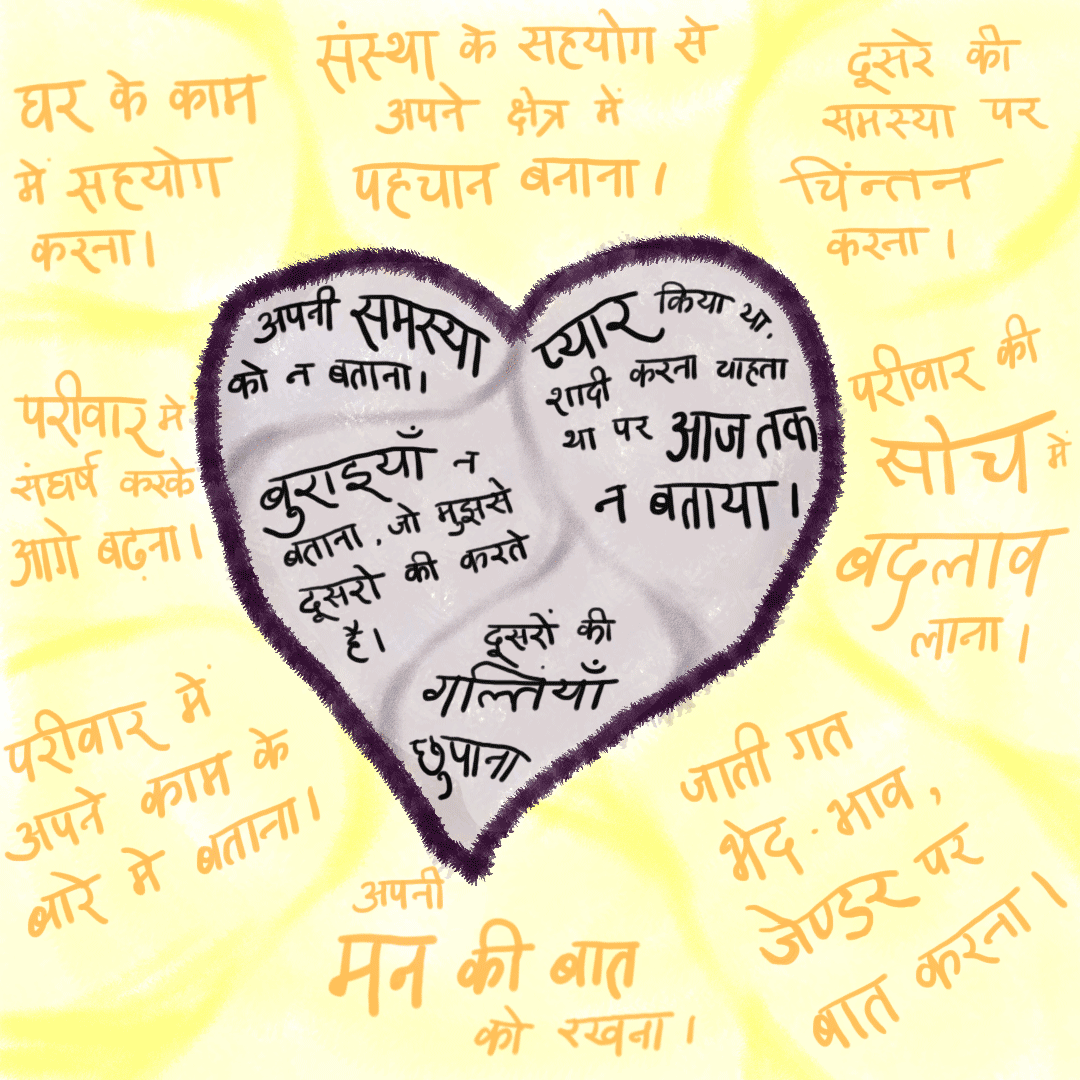 घर के काम
में सहयोग
करना।
संस्था के सहयोग से
अपने क्षेत्र में
पहचान बनाना।
दूसरे की
समस्या पर
चिंन्तन
करना।
अपनी समस्या
को न बताना।
प्यार किया था.
शादी करना चाहता
था पर आज तक
न बताया।
बुराइयाँ न
बताना. जो मुझसे
दूसरो की करते
है।
दूसरों की
गल्तियाँ
छुपाना
परीवार मे
संघर्ष करके
आगे बढ़ना।
परीवार की
सोच मे
बदलाव
लाना।
परीवार में
अपने काम के
बारे मे बताना।
अपनी
मन की बात
को रखना।
जाती गत
भेद-भाव,
जेण्डर पर
बात करना।